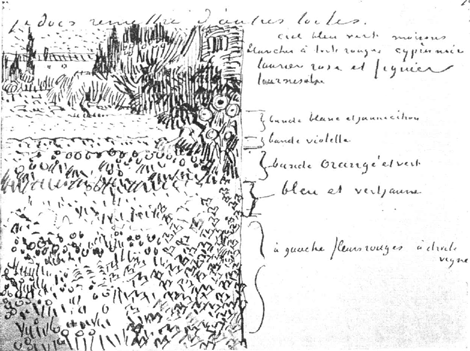 dois remettre d'autres toiles.
ciel bleu vert maisons
blanches à toits rouges cyprès noir
laurier rose et figuier
tournesols
bande blanc et jaune citron
bande violette
bande orangé et vert
bleu et vert jaune
à gauche fleurs rouges à droite
vigne